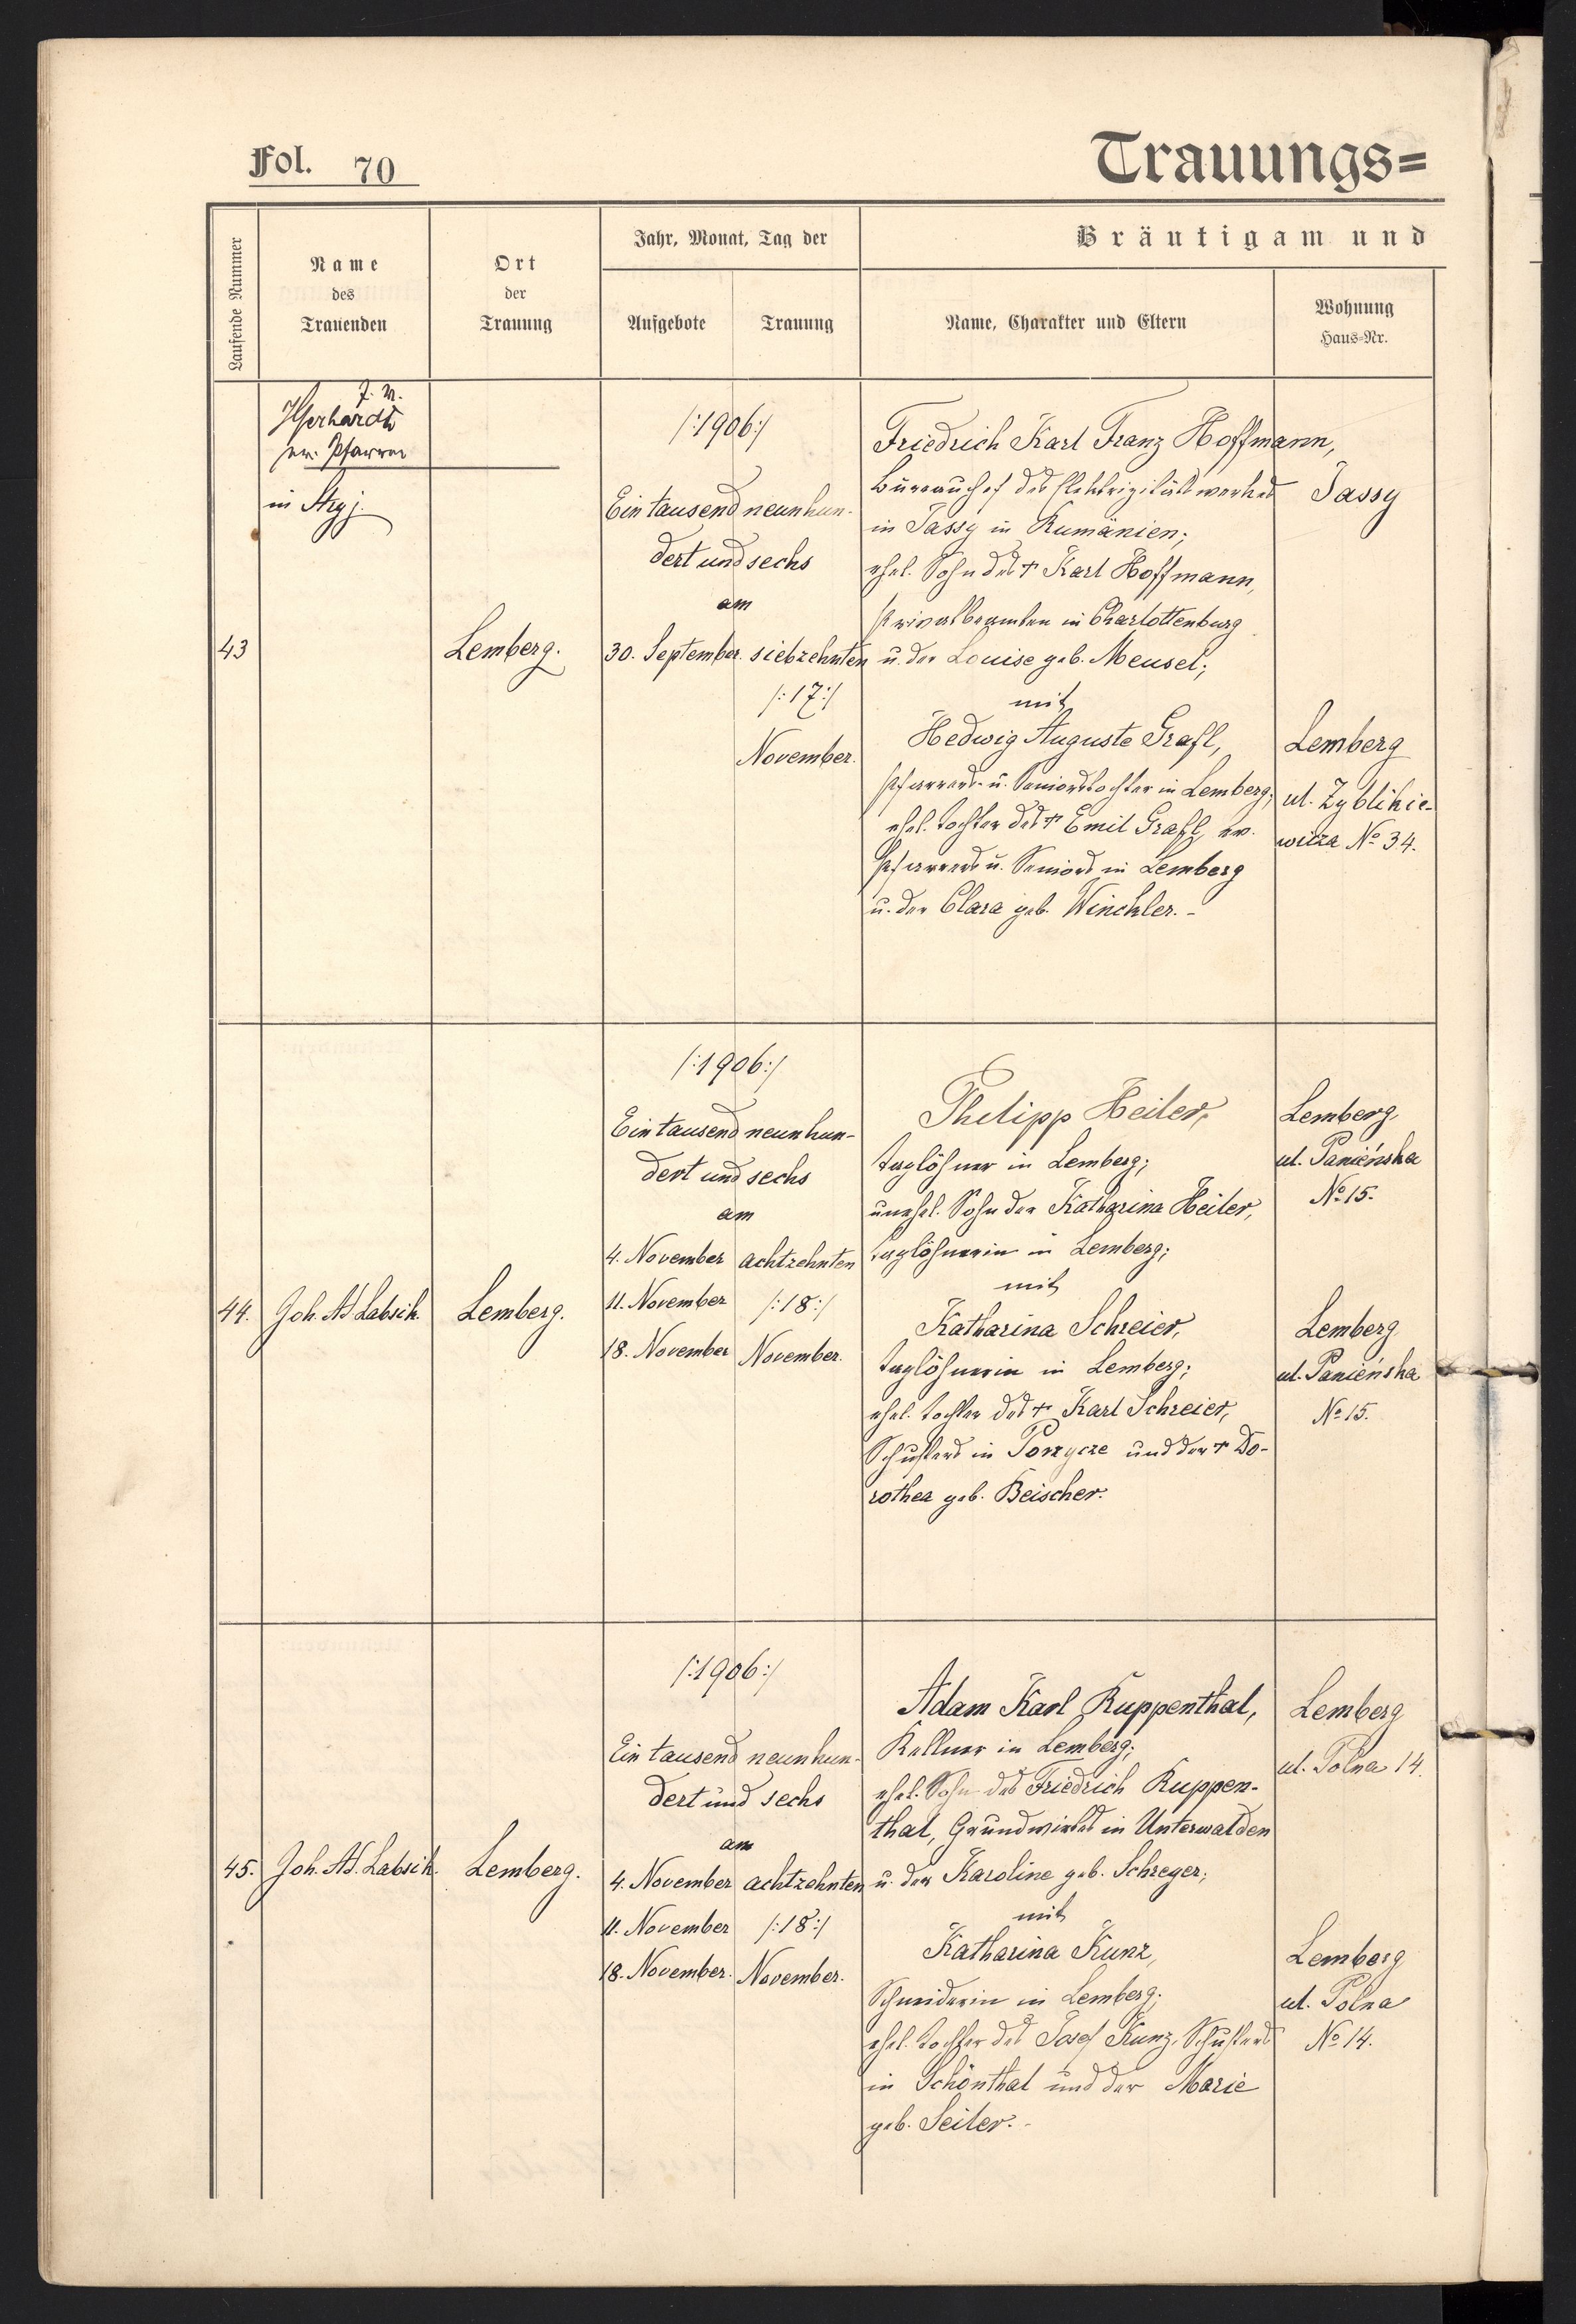 Fol. 70
Trauungs=
Laufende Nummer
Name
des
Trauenden
Ort
der
Trauung
Jahr, Monat, Tag der
Aufgebote
Trauung
Bräutigam und
Name, Charakter und Eltern
Wohnung
Haus=Nr.
J. W.
Gerhardt
ev. Pfarrer
in Stryj.
43
Lemberg.
/:1906:/
Ein tausend neunhun-
dert und sechs
am
30. September.
siebzehnten
/:17:/
November.
Friedrich Karl Franz Hoffmann,
Bureauchef des Elektrizitätswerkes
in Jassy in Rumänien;
ehel. Sohn des + Karl Hoffmann,
Privatbeamten in Charlottenburg
u. der Louise geb. Meusel;
mit
Hedwig Auguste Grafl,
Pfarrers- u. Seniorstochter in Lemberg;
ehel. Tochter des + Emil Grafl, ev.
Pfarrers u. Seniors in Lemberg
u. der Clara geb. Winckler.-
Jassy
Lemberg
ul. Zyblikie-
wicza No 34.
44.
Joh. Ad Labsik.
Lemberg.
/:1906:/
Ein tausend neunhun-
dert und sechs
am
4. November
11. November
18. November
achtzehnten
/:18:/
November.
Philipp Heiler,
Taglöhner in Lemberg;
unehel. Sohn der Katharina Heiler,
Taglöhnerin in Lemberg;
mit
Katharina Schreier,
Taglöhnerin in Lemberg;
ehel. Tochter des + Karl Schreier,
Schusters in Porzycze und der + Do-
rothea geb. Beischer.
Lemberg
ul. Panieńska
No 15.
Lemberg
ul. Panieńska
No 15.
45.
Joh. Ad. Labsik.
Lemberg.
/:1906:/
Ein tausend neunhun-
dert und sechs
am
4. November
11. November
18. November.
achtzehnten
/:18:/
November.
Adam Karl Ruppenthal,
Kellner in Lemberg;
ehel. Sohn des Friedrich Ruppen-
thal, Grundwirtes in Unterwalden
u. der Karoline geb. Schreyer;
mit
Katharina Kunz,
Schneiderin in Lemberg;
ehel. Tochter des Josef Kunz, Schusters
in Schönthal und der Marie
geb. Seiler.-
Lemberg
ul. Polna 14.
Lemberg
ul. Polna
No 14.